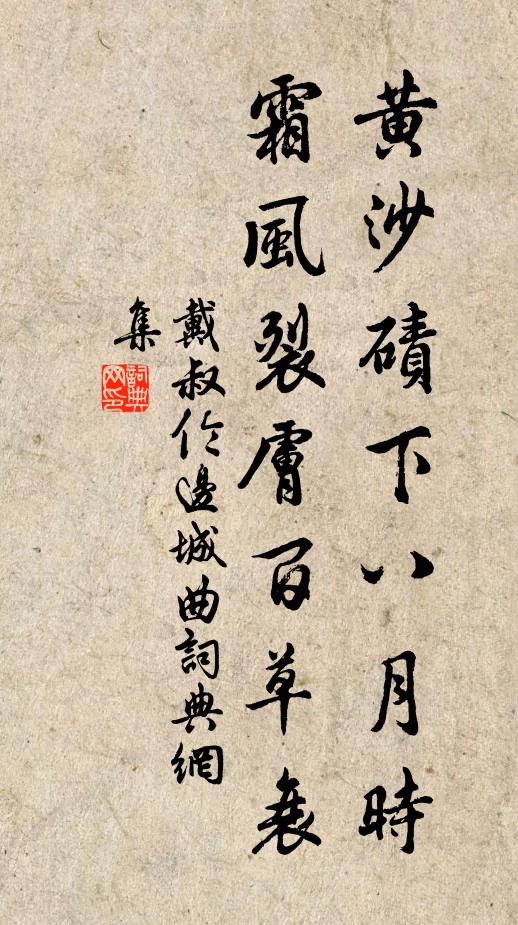 黃沙磧下八月時
霜風裂膚百草衰
戴叔伦邊城曲詞典網
集
詞典
网印